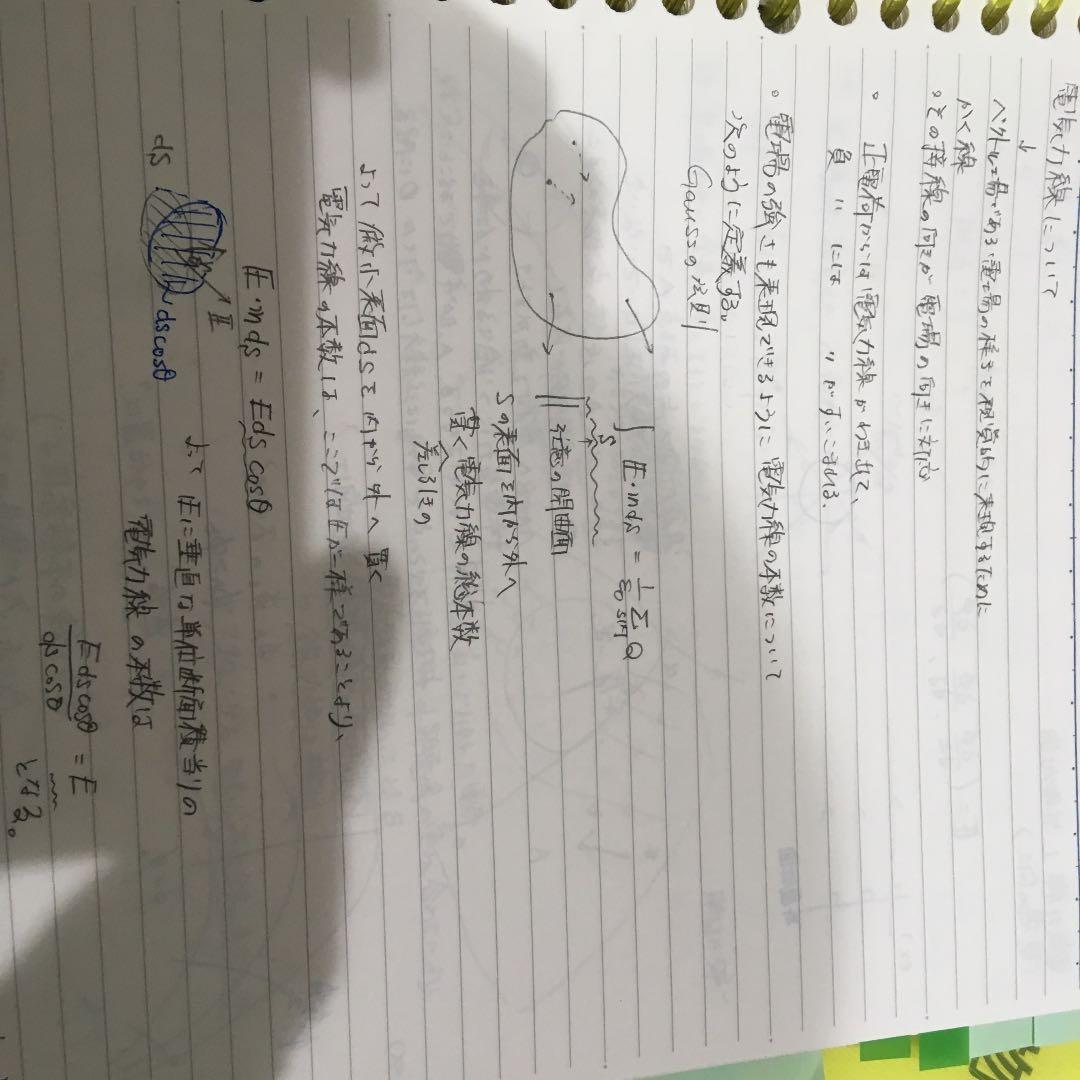 電気力線について
↓
ベクトル場である電場の様子を視覚的に表現するために
かく線
。その接線の向きが電場の向きに対応
。正電荷からは電気力線がわき出て、
負 〃 には 〃 がすいこまれる.
。電場の強さも表現できるように電気力線の本数について
次のように定義する。
Gaussの法則
∫S E・n ds = 1/ε0 Σ Q
S内
任意の閉曲面
Sの表面を内から外へ
貫く電気力線の総本数
差し引きの
よって微小表面dsを内から外へ貫く
電気力線の本数は、ここではEが一様であることより、
E・n ds = E ds cosθ
ds
θ
E
ds cosθ
よって Eに垂直な単位断面積当りの
電気力線の本数は
E ds cosθ / ds cosθ = E
となる。